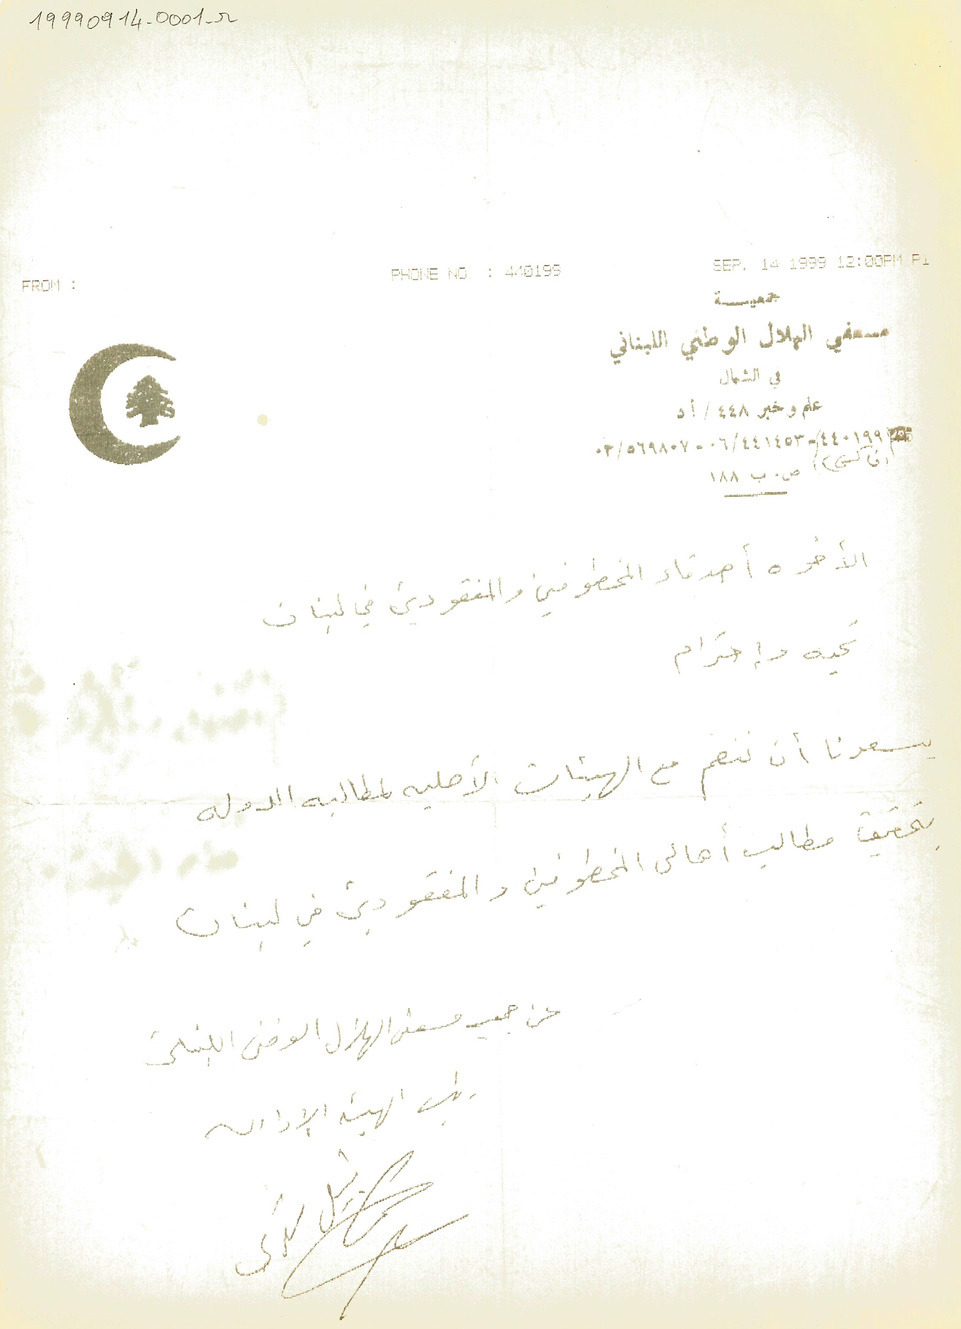 19990914-0001-r
FROM : PHONE NO. : 440199 SEP. 14 1999 12:00PM P1
جمعيـــة
مسعفي الهلال الوطني اللبناني
في الشمال
علم و خبر ٤٤٨ / أ د
٤٤٠١٩٩ - ٠٦/٤٤١٤٥٣ - ٠٣/٥٦٩٨٠٧
(فاكس) ص.ب ١٨٨
الأخوه أصدقاء المخطوفين والمفقودين في لبنان
تحيه واحترام
يسعدنا أن ننضم مع الهيئات الأهليه لمطالبه الدوله
بتحقيق مطالب أهالي المخطوفين والمفقودين في لبنان
عن جمعيه مسعفي الهلال الوطني اللبناني
رئيس الهيئه الإداريه